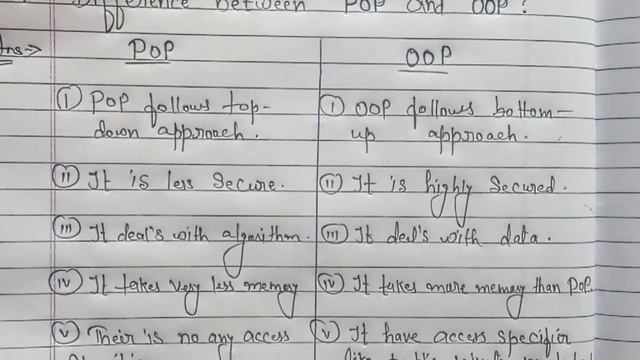 Difference between POP and OOP?
Ans →
POP
OOP
(i) POP follows top-
down approach.
(i) OOP follows bottom-
up approach.
(ii) It is less Secure.
(ii) It is highly Secured.
(iii) It deal's with algorithm.
(iii) It deal's with data.
(iv) It takes very less memory
(iv) It takes more memory than POP.
(v) Their is no any access
(v) It have access specifier